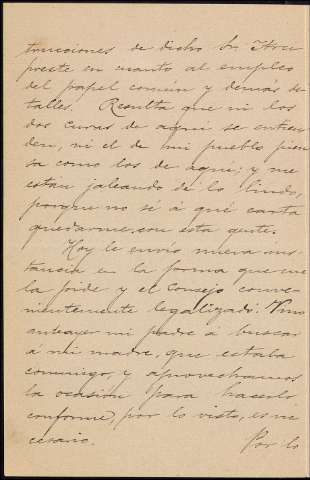 trucciones de dicho Sr. Arci
preste en cuanto al empleo
del papel común y demás de
talles. Resulta que ni los
dos curas de aquí se entien
den, ni el de mi pueblo pien
sa como los de aquí; y me
están jaleando de lo lindo,
porque no sé á qué carta
quedarme con esta gente.
Hoy le envío nueva ins-
tancia en la forma que me
la pide y el Consejo conve-
nientemente legalizado. Vino
anteayer mi padre á buscar
á mi madre, que estaba
conmigo, y aprovechamos
la ocasión para hacerlo
conforme, por lo visto, es ne
cesario.
Por lo